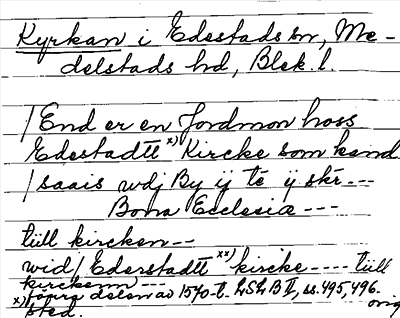 Kyrkan i Edestads sn, Me-
delstads hd, Blek. l.
/End er en Jordmon hoss
Edestadtt x) Kircke som kand
/saais wdj By ij tē ij skr. ---
Bona Ecclesiæ ---
tiill kircken --
wid/Ederstadtt xx) kircke ---- tiill
kirckenn ---
x) förra delen av 1570-t. LSLB II, ss. 495, 496.
sted. orig